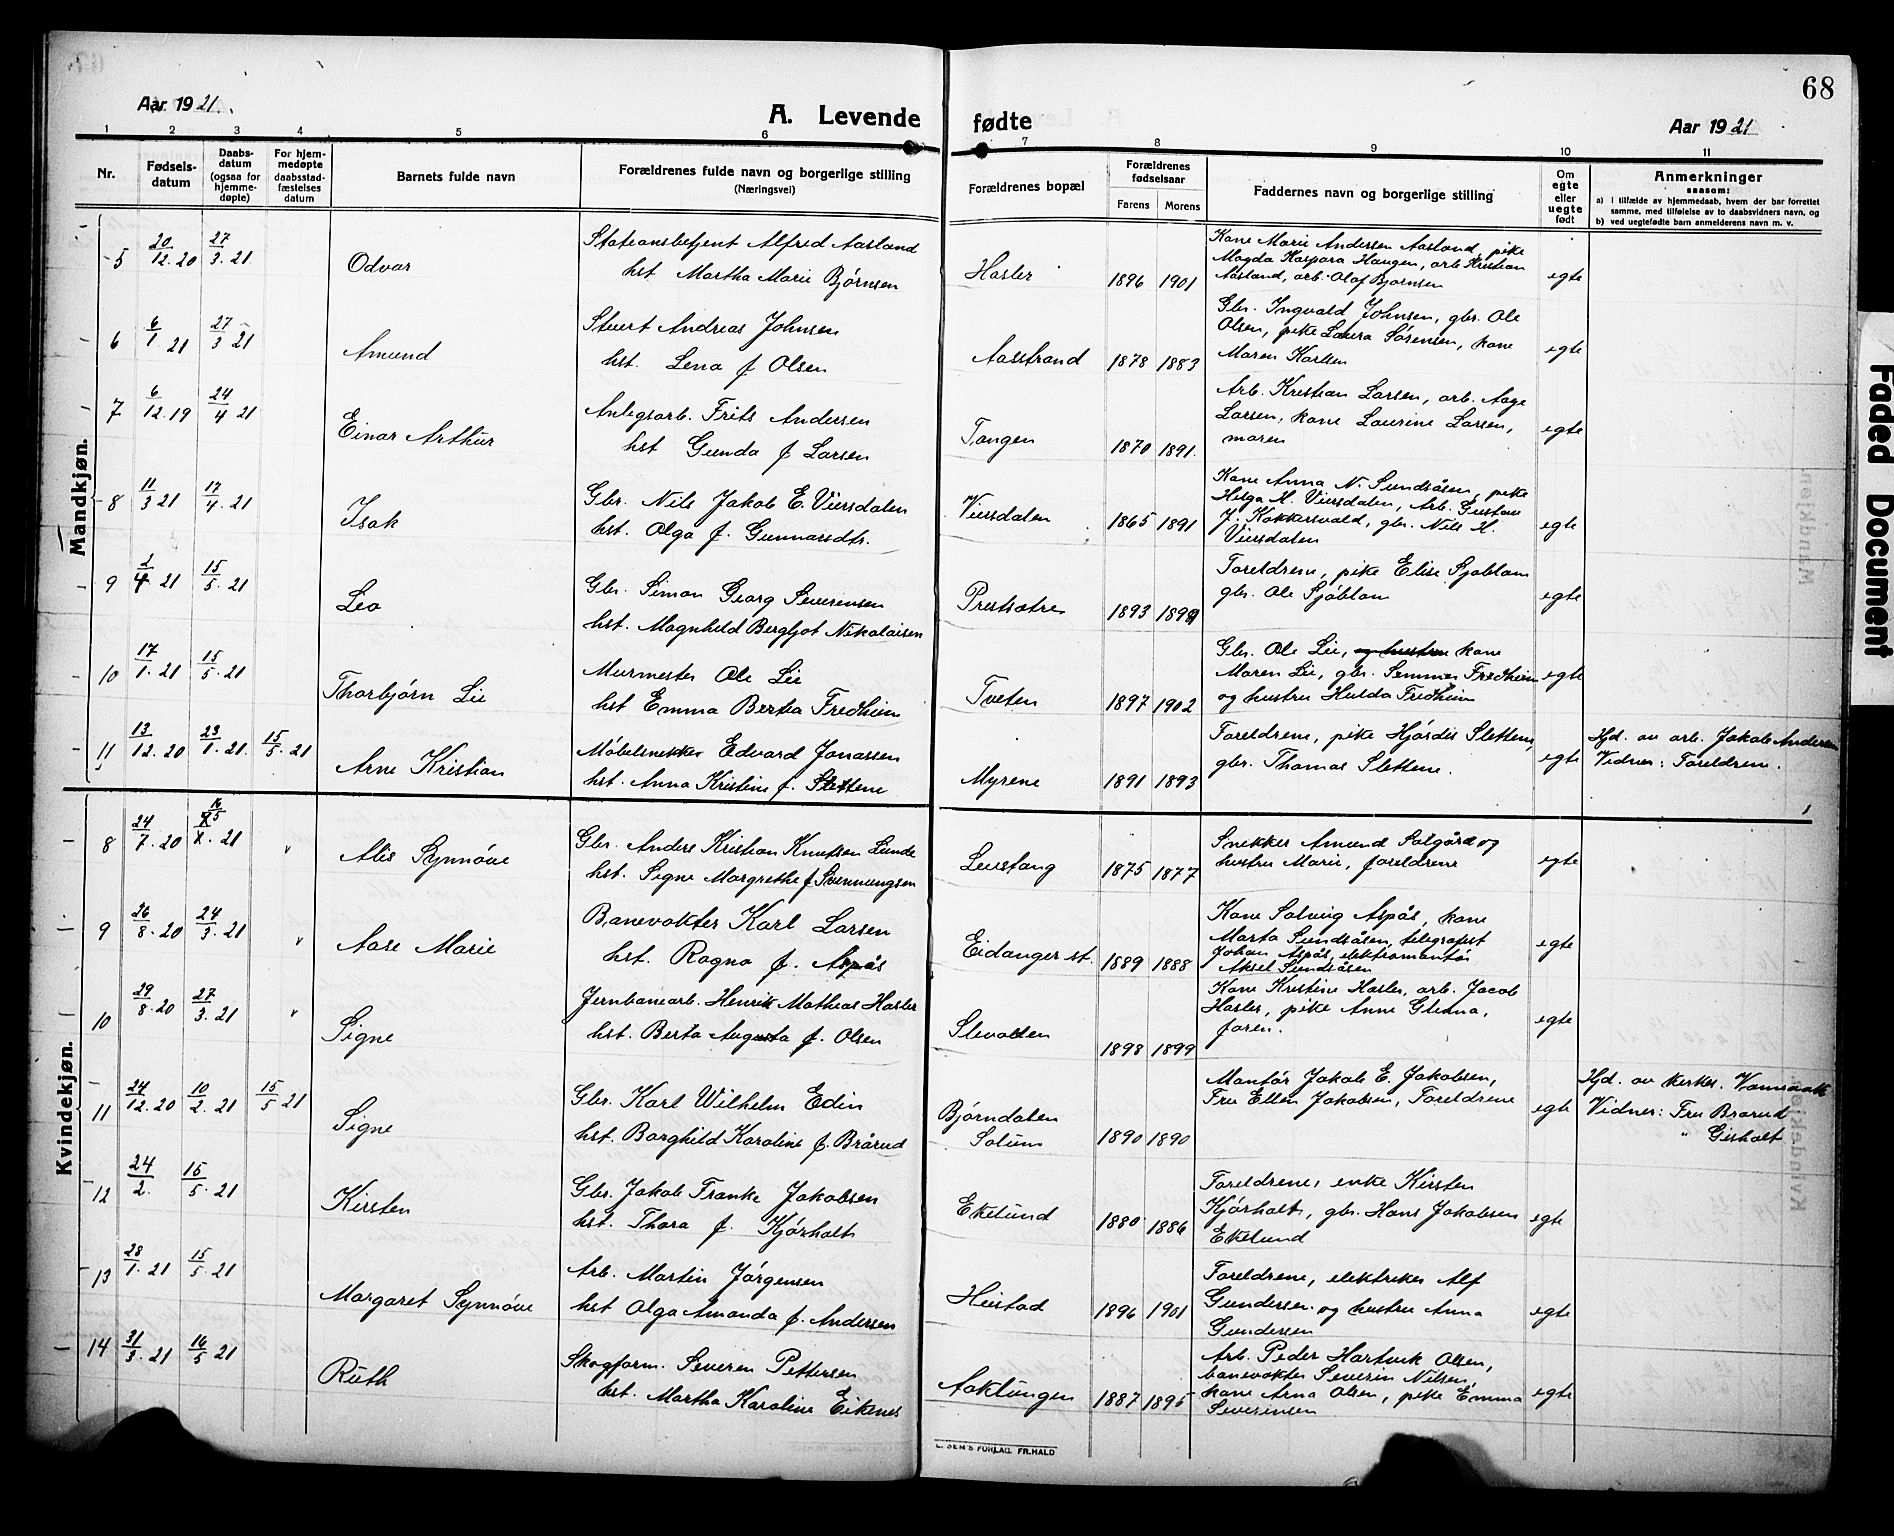 68
Aar 1921.
A. Levende fødte
Aar 1921
1 2 3 4 5 6 7 8 9 10 11
Nr.
Fødsels-
datum
Daabs-
datum
(ogsaa for
hjemme-
døpte)
For hjem-
medøpte
daabsstad-
fæstelses
datum
Barnets fulde navn
Forældrenes fulde navn og borgerlige stilling
(Næringsvei)
Forældrenes bopæl
Forældrenes
fødselsaar
Farens Morens
Faddernes navn og borgerlige stilling
Om
egte
eller
uegte
født
Anmerkninger
saasom:
a) i tilfælde av hjemmedaab, hvem der har forrettet
samme, med tilføielse av to daabsvidners navn, og
b) ved uegtefødte barn anmelderens navn m. v.
Mandkjøn.
5 20/12.20 27/3.21 Odvar
Stationsbetjent Alfred Aasland
hst Martha Marie Bjørnsen
Hasler 1896 1901
Kone Marie Andersen Aasland, pike
Magda Kaspara Haugen, arb Kristian
Aasland, arb. Olaf Bjørnsen
egte
6 6/1 21 27/3 21 Amund
Stuert Andreas Johnsen
hst. Lena f Olsen
Aasstrand 1878 1883
Gbr. Ingvald Johnsen, gbr. Ole
Olsen, pike Laura Sørensen, kone
Maren Karlsen
egte
7 6/12.19 24/4 21 Einar Arthur
Anlegsarb. Frits Andersen
hst Gunda f Larsen
Tangen 1870 1891.
Arb. Kristian Larsen, arb. Aage
Larsen, kone Laurine Larsen,
moren
egte
8 11/3 21 17/4.21 Isak
Gbr. Nils Jakob E. Viersdalen
hst. Olga f. Gunnarsdtr.
Viersdalen 1865 1891
Kone Anna N. Sundsåsen, pike
Helga H. Viersdalen, Arb. Gustav
J. Kokkersvold, gbr. Nils H.
Viersdalen
egte
9 2/4.21 15/5.21 Leo
Gbr. Simon Georg Severinsen
hst. Magnhild Bergljot Nikolaisen
Prestsætre 1893 1899
Foreldrene, pike Elise Sjøblom
gbr. Ole Sjøblom
egte
10 17/1.21 15/5.21 Thorbjørn Lie
Murmester Ole Lie
hst Emma Berta Fredheim
Tveten 1897 1902
Gbr. Ole Lie, og hustru kone
Maren Lie, gbr. Semmer Fredheim
og hustru Hulda Fredheim
egte
11 13/12.20 23/1.21 15/5.21 Arne Kristian
Møbelsnekker Edvard Jonassen
hst. Anna Kristine f. Slettene
Myrene 1891 1893
Foreldrene, pike Hjørdis Slettene,
gbr. Thomas Slettene.
egte
Hjd. av arb. Jakob Andersen
Vidner: Foreldrene.
Kvindekjøn.
8 24/7.20 16/5.21 Alis Synnøve
Gbr. Anders Kristian Knutsen Lunde
hst. Signe Margrethe f Svennungsen
Leirstang 1875 1877
Snekker Amund Solgård og
hustru Marie, foreldrene
egte
9 26/8.20 24/3.21 Aase Marie
Banevokter Karl Larsen
hst. Ragna f. Aspås
Eidanger st. 1889 1888
Kone Solveig Aspås, kone
Marta Sundsåsen, telegrafist
Johan Aspås, elektromontør
Aksel Sundsåsen
egte
10 29/8.20 27/3.21 Signe
Jernbanearb. Henrik Mathias Hasler
hst. Berta Augusta f. Olsen
Slevolden 1898 1899
Kone Kristine Hasler, arb. Jacob
Hasler, pike Anne Glenna,
faren.
egte
11 24/12.20 10/2.21 15/5 21 Signe
Gbr. Karl Wilhelm Edin
hst. Borghild Karoline f. Brårud
Bjørndalen
Solum 1890 1890
Montør Jakob E. Jakobsen,
Fru Ellen Jakobsen, Foreldrene
egte
Hjd. av kirkes.
Vidner: Fru Brarud
" Gisholt
12 24/2. 15/5.21 Kirsten
Gbr. Jakob Franke Jakobsen
hst. Thora f. Kjørholt
Ekelund 1880 1886
Foreldrene, enke Kirsten
Kjørholt, gbr. Hans Jakobsen
Ekelund
egte
13 28/1.21 15/5.21 Margaret Synnøve
Arb. Martin Jørgensen
hst Olga Amanda f. Andersen
Heistad 1896 1901
Foreldrene, elektriker Alf
Gundersen og hustru Anna
Gundersen
egte
14 31/3.21 16/5 21 Ruth
Skogform. Severin Pettersen
hst. Martha Karoline Eikenes
Aaklungen 1887 1895
Arb. Peder Hartvik Olsen,
banevokter Severin Nilsen,
kone Anna Olsen, pike Emma
Severinsen
egte
E. SEM'S FORLAG, FR.HALD
Faded Document